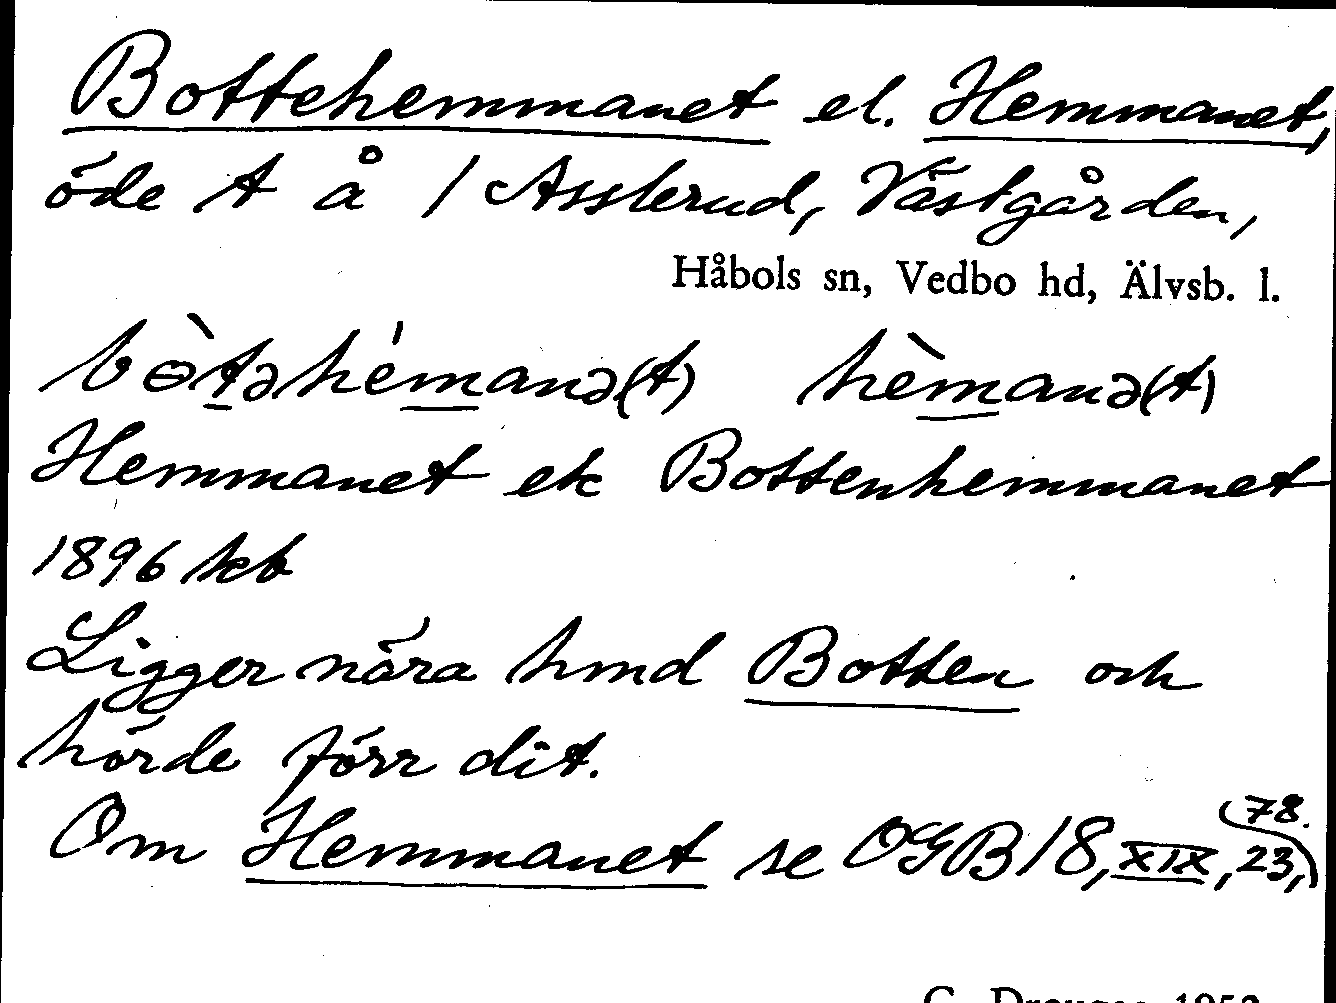 Bottehemmanet el. Hemmanet,
öde t å 1 Asslerud, Västgården,
Håbols sn, Vedbo hd, Älvsb. l.
bɵ̀təhémanə(t) hèmanə(t)
Hemmanet ek Bottenhemmanet
1896 kb
Ligger nära hmd Botten och
hörde förr dit.
Om Hemmanet se OGB 18, XIX, 23, 78.